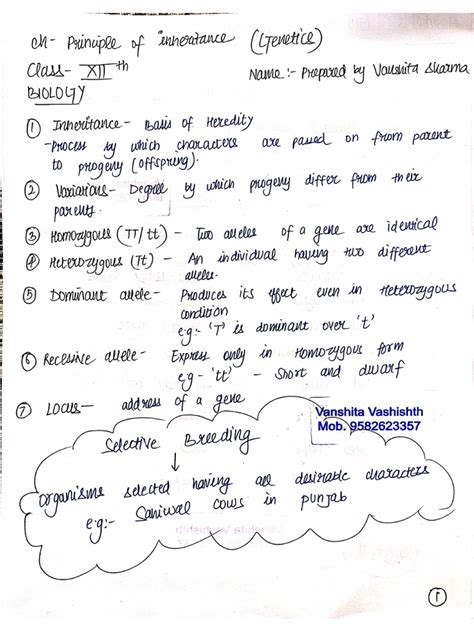 Ch- Principle of inheretance (Genetics)
Class- XII th
Name :- Prepared by Vanshita Sharma
BIOLOGY
① Inheritance - Basis of Heredity
-Process by which characters are passed on from parent
to progeny (offspring).
② Variations - Degree by which progeny differ from their
parents.
③ Homozygous (TT/tt) - Two alleles of a gene are identical
④ Heterozygous (Tt) - An individual having two different
alleles.
⑤ Dominant allele- Produces its effect even in Heterozygous
condition
e.g:- 'T' is dominant over 't'
⑥ Recessive allele- Express only in Homozygous form
e.g - 'tt' - Short and dwarf
⑦ Locus- address of a gene
Vanshita Vashishth
Mob. 9582623357
Selective Breeding
↓
organisms selected having all desirable characters
e.g:- Saniwal cows in punjab
①